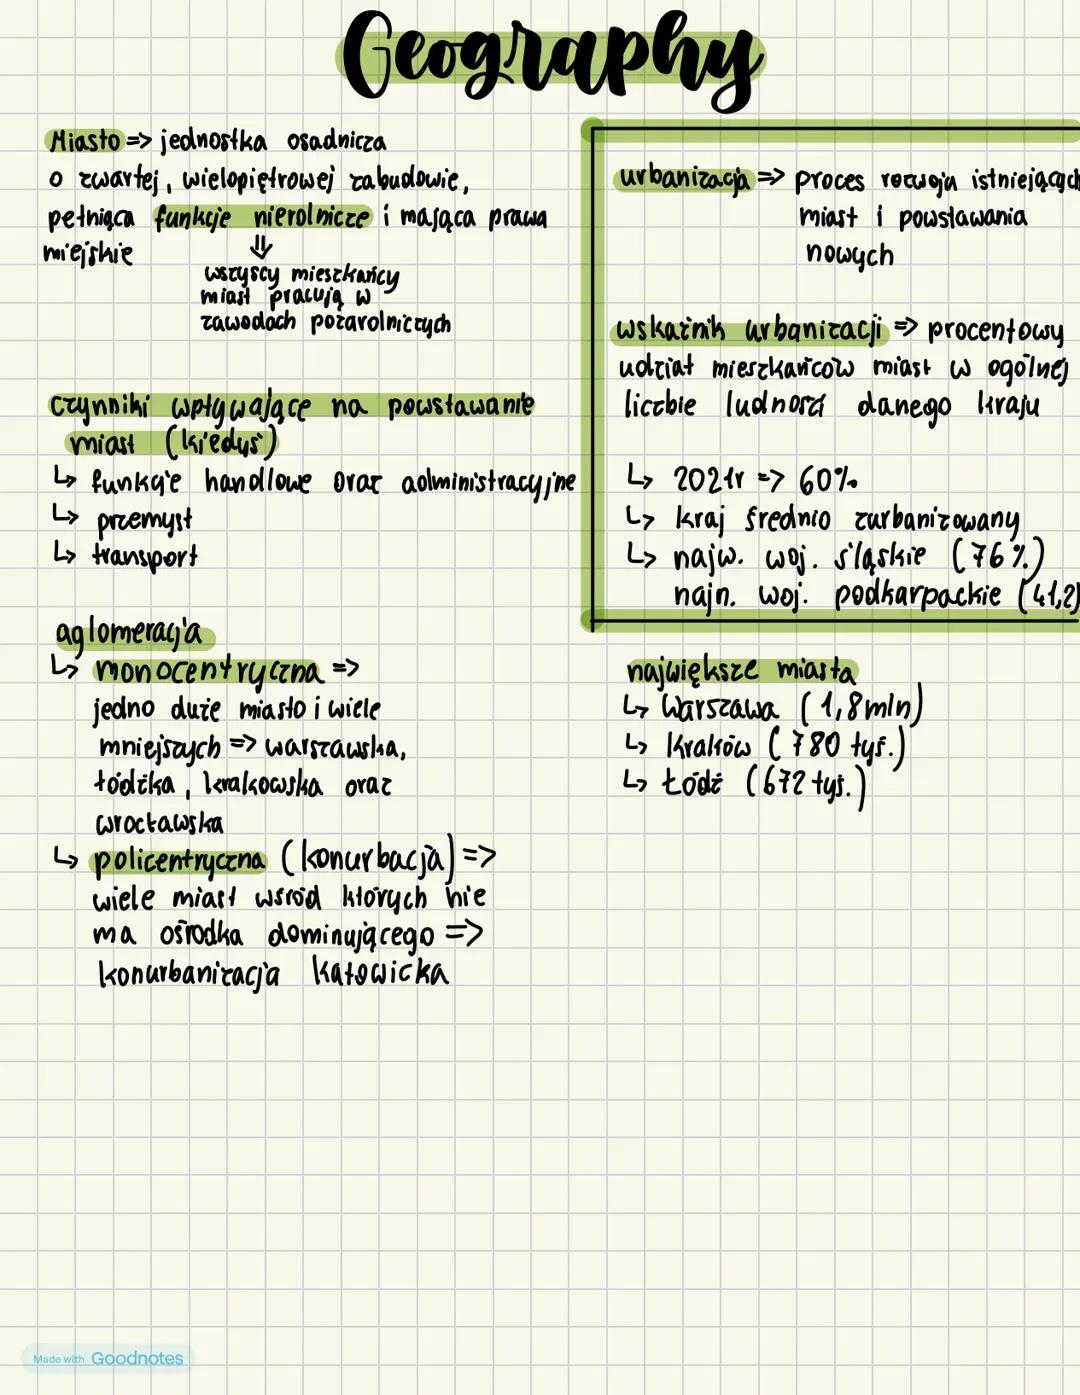 Geography
Miasto => jednostka osadnicza
o zwartej, wielopiętrowej zabudowie,
pełniąca funkcje nierolnicze i mająca prawa
miejskie
wszyscy mieszkańcy
miast pracują w
zawodach pozarolniczych
czynniki wpływające na powstawanie
miast (kiedyś)
↳ funkcje handlowe oraz administracyjne
↳ przemysł
↳ transport
aglomeracja
↳ monocentryczna =>
jedno duże miasto i wiele
mniejszych => warszawska,
łódzka, krakowska oraz
wrocławska
↳ policentryczna (konurbacja) =>
wiele miast wśród których nie
ma ośrodka dominującego =>
konurbanizacja katowicka
urbanizacja => proces rozwoju istniejących
miast i powstawania
nowych
wskaźnik urbanizacji => procentowy
udział mieszkańców miast w ogólnej
liczbie ludności danego kraju
↳ 2021r => 60%
↳ kraj średnio zurbanizowany
↳ najw. woj. śląskie (76%)
najn. woj. podkarpackie (41,2)
największe miasta
↳ Warszawa (1,8mln)
↳ Kraków (780 tyś.)
↳ Łódź (672 tyś.)
Made with Goodnotes